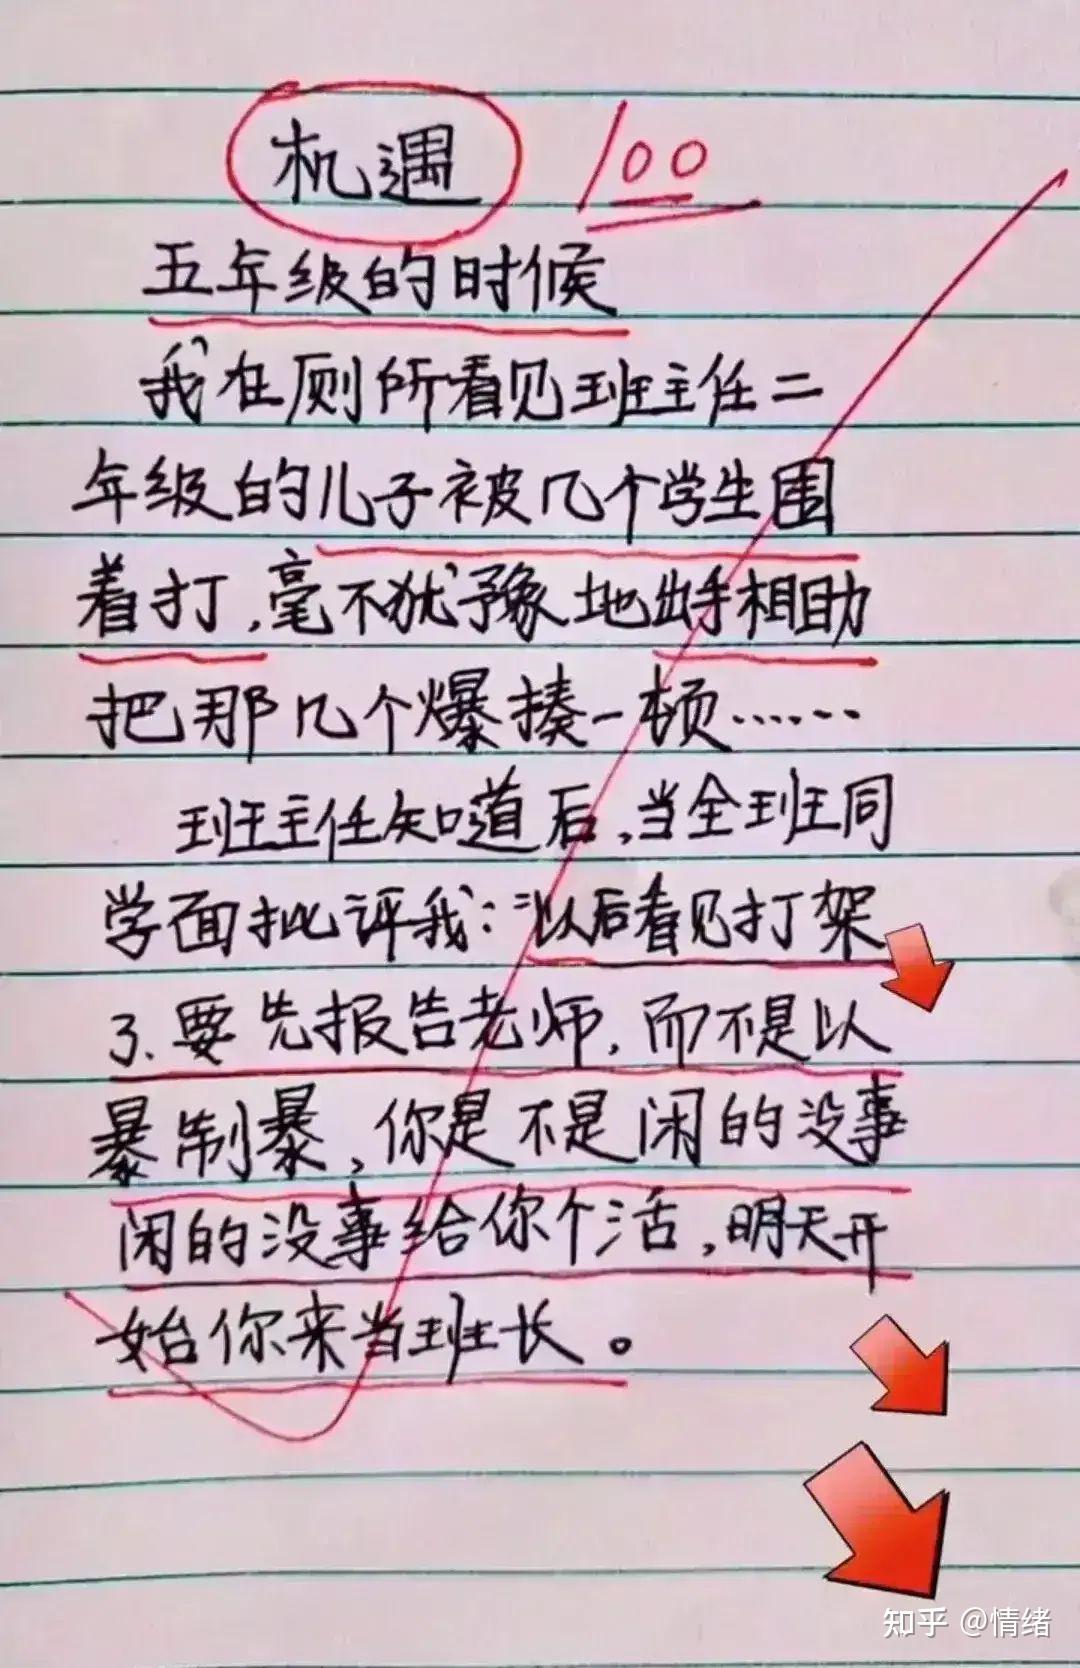 机遇 100
五年级的时候
我在厕所看见班主任二
年级的儿子被几个学生围
着打,毫不犹豫地出手相助
把那几个爆揍一顿……
班主任知道后,当全班同
学面批评我:"以后看见打架
3.要先报告老师,而不是以
暴制暴,你是不是闲的没事
闲的没事给你个活,明天开
始你来当班长。
知乎 @情绪